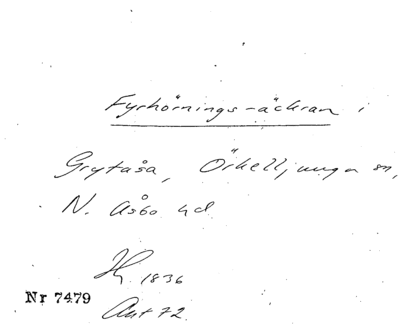 Fyrhörnings-äckran i
Grytåsa, Örkelljunga sn,
N. Åsbo hd
1836
Nr 7479
Ant 72.